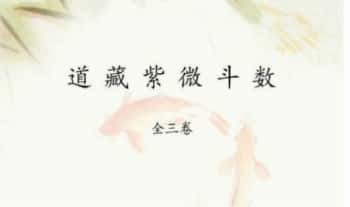 道藏紫微斗数
全三卷